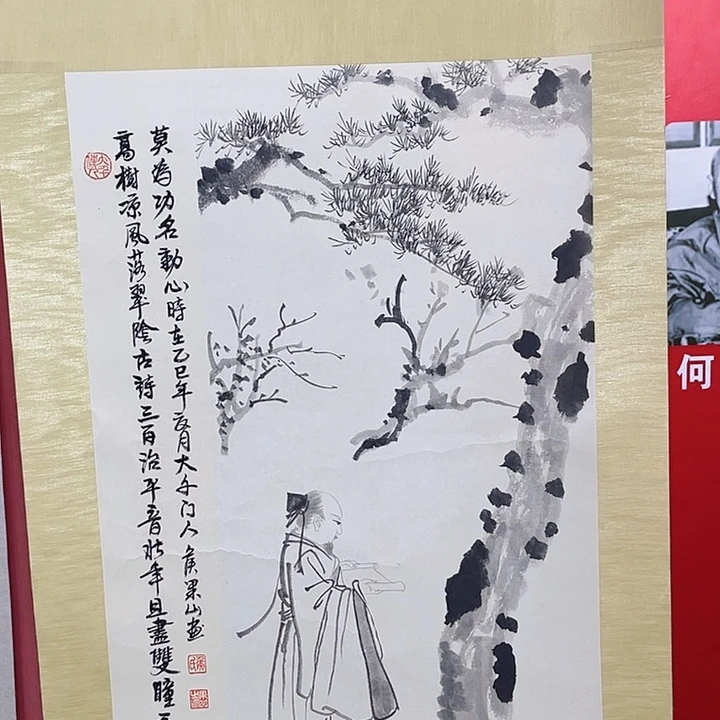 高樹凉風落翠陰古詩三百治平音壯年且盡雙瞳
莫為功名動心時在乙巳年夏月大千门人 山画
何